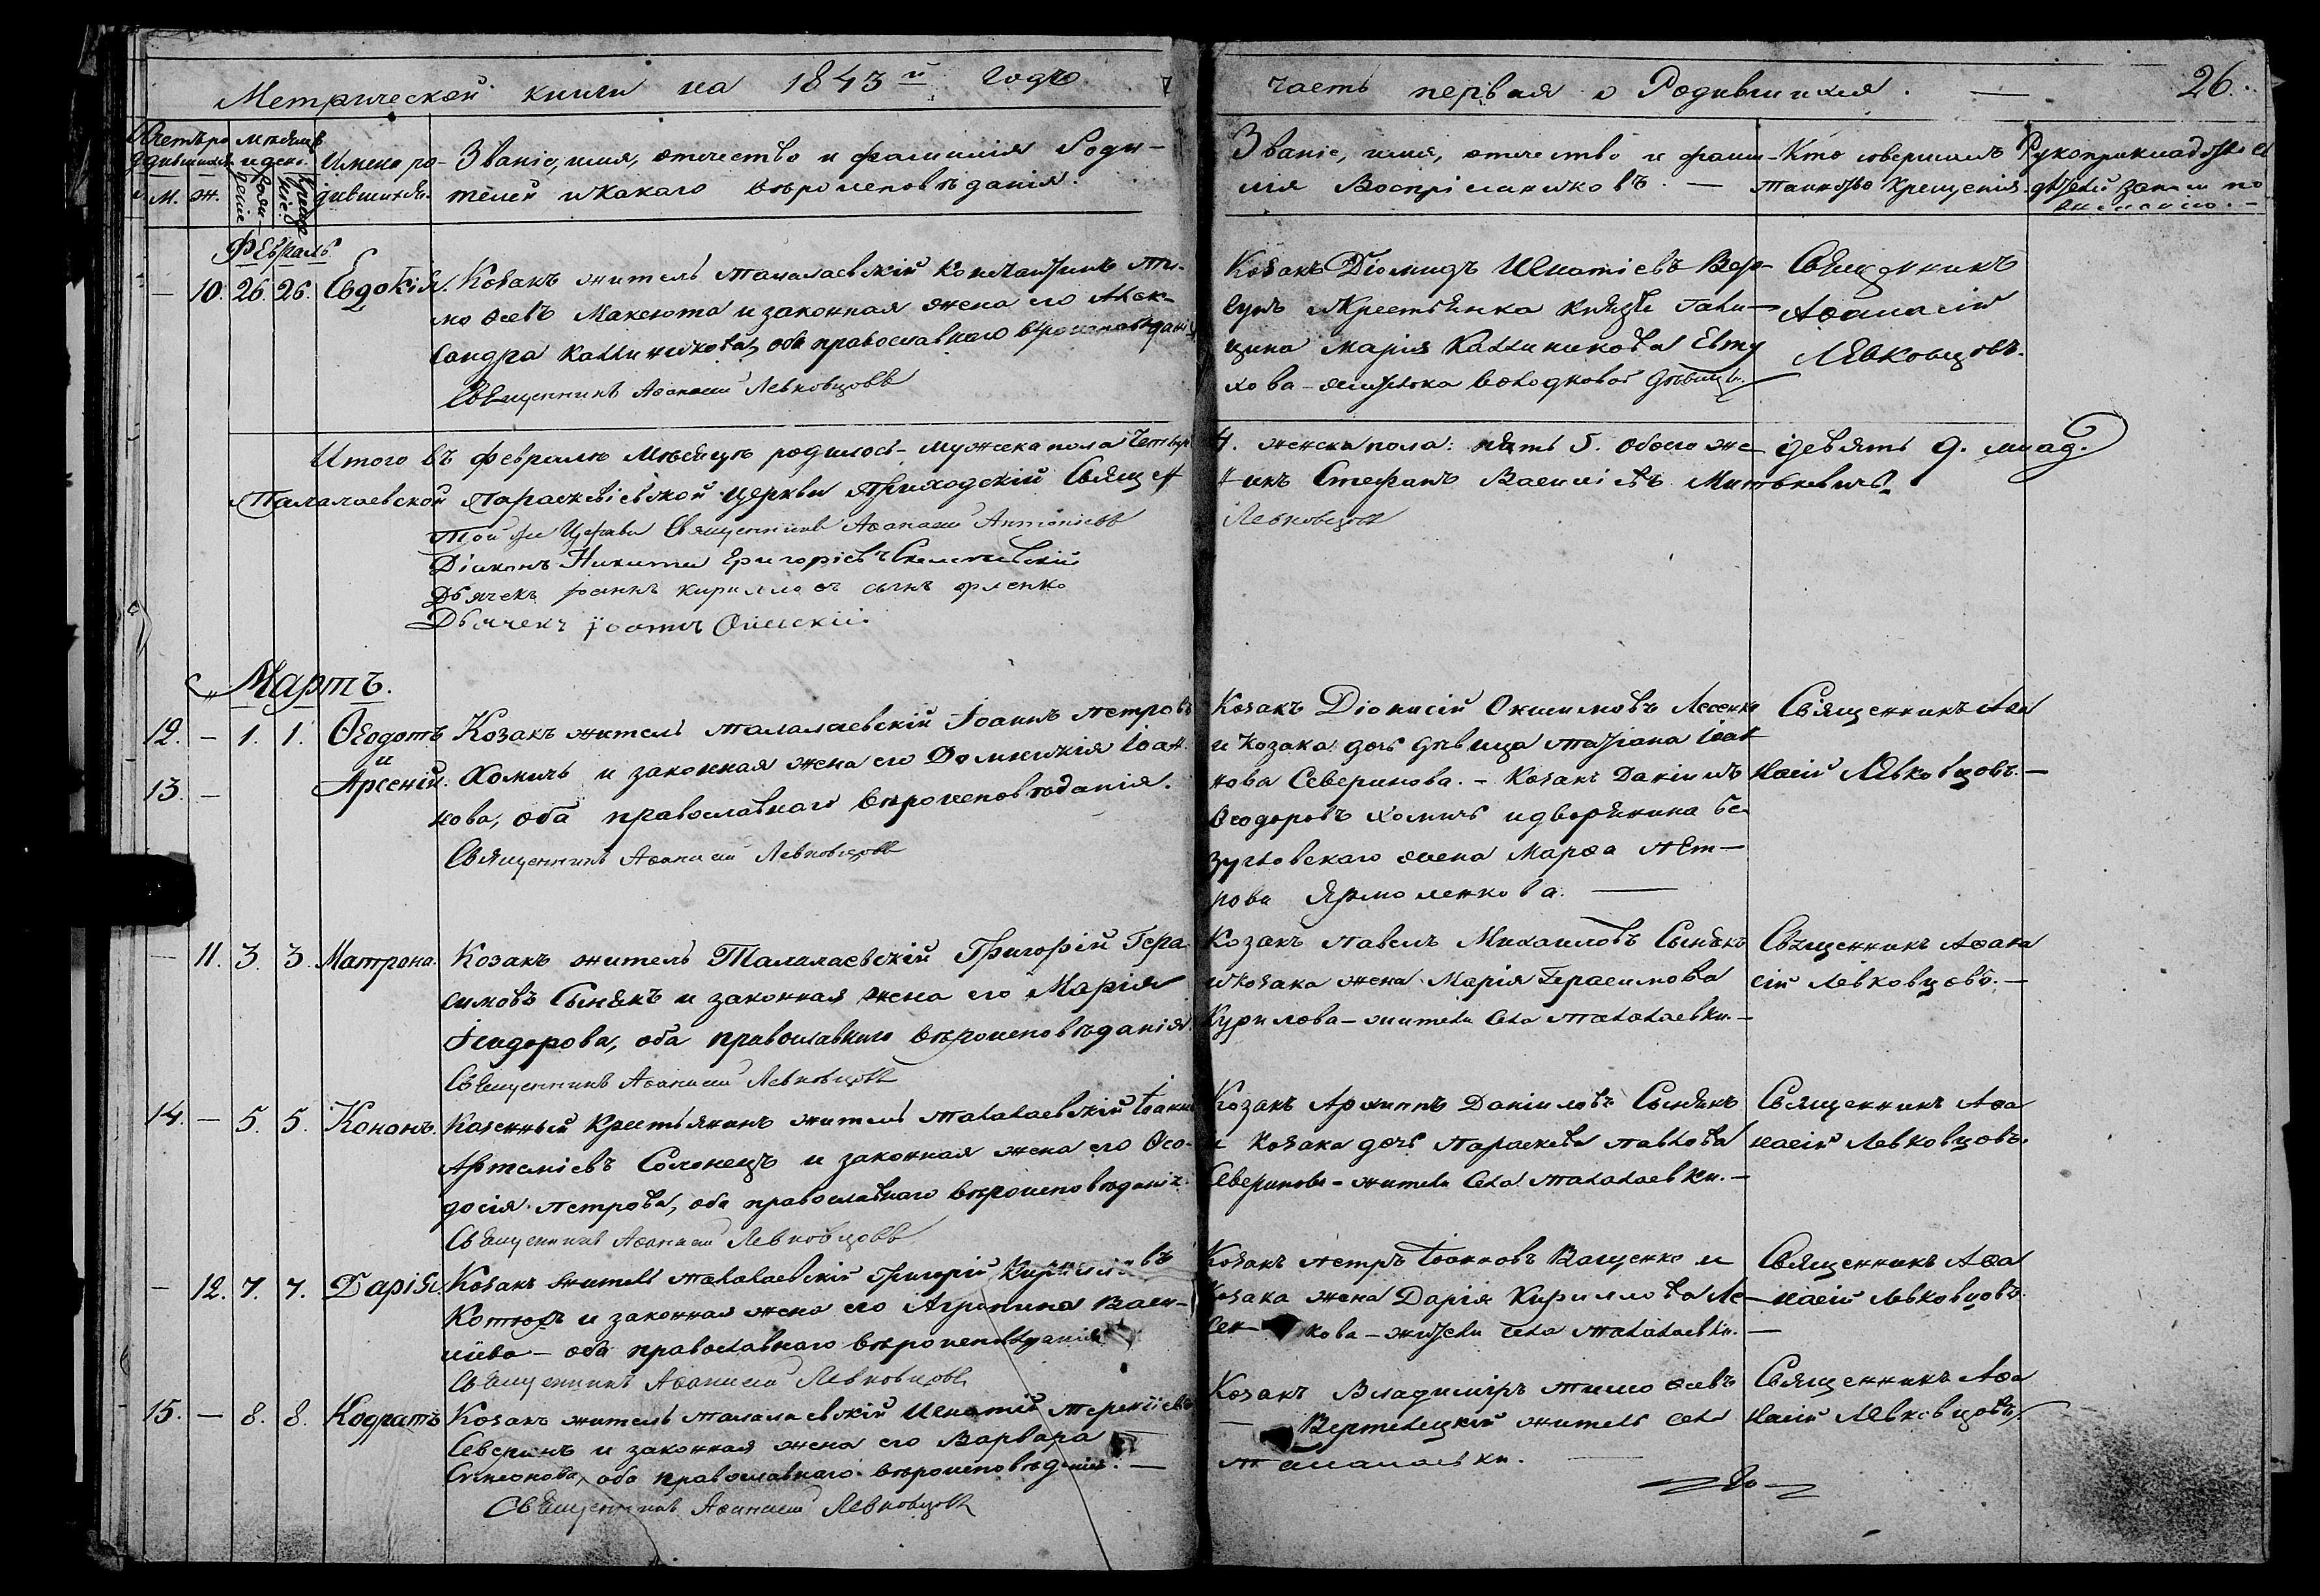 Метрической книги на 1843й годъ
часть первая о Родившихся. — 26.
Счетъ ро- Мѣсяцъ
дившихся и день. Имена ро- Званіе, имя, отечество и фамилія Роди-
М. Ж. рожденіе крещеніе дившихся. телей и какого вѣроисповѣданія.
Званіе, имя, отечество и фами- Кто совершалъ Рукоприкладство
лія Воспріемниковъ. — таинство крещенія. записи по
желанію. —
Февраль
— 10. 26. 26. Евдокія. Козакъ житель талалаевскій Константинъ Ти-
моѳеевъ Максюта и законная жена его Алек-
сандра Каллиникова, оба православнаго вѣроисповѣданія
Священникъ Аѳанасій Левковцовъ
Козакъ Діомидъ Игнатіевъ Вер-
гунъ и Крестьянка Князя Голи-
цына Марія Каллиникова Евту
хова — дѣвица.
Священникъ
Аѳанасій
Левковцовъ.
Итого въ Февралѣ Мѣсяцѣ родилось — мужеска пола четыре
4. женска пола: пять 5. обоего же девять 9. млад.
Талалаевской Параскевіевской церкви Приходскій Священ
никъ Стефанъ Василіевъ Митькевичъ.
Той же Церкви Священникъ Аѳанасій Антоніевъ
Левковцовъ
Діаконъ Никита Григоріевъ
Дьячекъ Іоаннъ Кирилловъ сынъ Орленко
Дьячекъ Іоаннъ
Мартъ.
12. — 1. 1. Ѳеодотъ Козакъ житель талалаевскій Іоаннъ Петровъ
и
13. — Арсеній. Хомичъ и законная жена его Домникія Іоан-
нова, оба православнаго вѣроисповѣданія.
Священникъ Аѳанасій Левковцовъ
Козакъ Діонисій Лесенко
и Козака дочь дѣвица Татіана Іоан
нова Северинова. — Козакъ Даніилъ
Ѳеодоровъ Хомичъ и дворянина Бе-
зугловскаго жена Марѳа Пет-
рова Ярмоленкова. —
Священникъ Аѳа
насій Левковцовъ. —
— 11. 3. 3. Матрона. Козакъ житель Талалаевскій Григорій Гера-
симовъ Сынякъ и законная жена его Марія
Ісидорова, оба православнаго вѣроисповѣданія.
Священникъ Аѳанасій Левковцовъ
Козакъ Павелъ Михаиловъ Сынякъ
и Козака жена Марія Герасимова
Курилова — жители села Талалаевки. —
Священникъ Аѳана
сій Левковцовъ. —
14. — 5. 5. Кононъ. Казенный крестьянинъ житель талалаевскій Іоаннъ
Артеміевъ Солонецъ и законная жена его Ѳео-
досія Петрова, оба православнаго вѣроисповѣданія.
Священникъ Аѳанасій Левковцовъ
Козакъ Архиппъ Даніиловъ Сынякъ
и Козака дочь Параскева Павлова
Северинова — жители села Талалаевки. —
Священникъ Аѳа
насій Левковцовъ.
— 12. 7. 7. Дарія. Козакъ житель талалаевскій Григорій Кирилловъ
Котюхъ и законная жена его Агрипина Васи-
ліева — оба православнаго вѣроисповѣданія
Священникъ Аѳанасій Левковцовъ
Козакъ Петръ Іоанновъ Ващенко и
Козака жена Дарія Кириллова Ле-
сен- кова — жители села Талалаевки. —
Священникъ Аѳа
насій Левковцовъ.
15. — 8. 8. Кодратъ Козакъ житель талалаевскій Игнатій Терентіевъ
Северинъ и законная жена его Варвара
Симеонова, оба православнаго вѣроисповѣданія. —
Священникъ Аѳанасій Левковцовъ
Козакъ Владиміръ Тимоѳеевъ
— Вертелецкій житель села
Талалаевки.
Священникъ Аѳа
насій Левковцовъ.